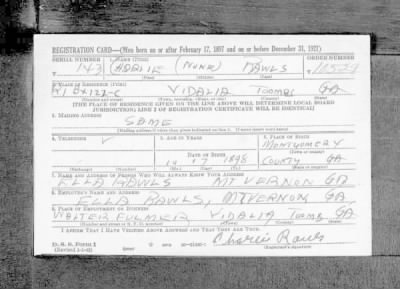 REGISTRATION CARD—(Men born on or after February 17, 1897 and on or before December 31, 1921)
SERIAL NUMBER 1. NAME (Print) ORDER NUMBER
143 CHARLIE (NONE) RAWLS
(First) (Middle) (Last)
2. PLACE OF RESIDENCE (Print)
VIDALIA TOOMBS GA
(Number and street) (Town, township, village, or city) (County) (State)
[THE PLACE OF RESIDENCE GIVEN ON THE LINE ABOVE WILL DETERMINE LOCAL BOARD
JURISDICTION; LINE 2 OF REGISTRATION CERTIFICATE WILL BE IDENTICAL]
3. MAILING ADDRESS
SAME
[Mailing address if other than place indicated on line 2. If same insert word same]
4. TELEPHONE 5. AGE IN YEARS 6. PLACE OF BIRTH
MONTGOMERY
DATE OF BIRTH (Town or county)
17 1898 COUNTY GA
(Exchange) (Number) (Mo.) (Day) (Yr.) (State or country)
7. NAME AND ADDRESS OF PERSON WHO WILL ALWAYS KNOW YOUR ADDRESS
ELLA RAWLS MT VERNON GA
8. EMPLOYER'S NAME AND ADDRESS
ELLA RAWLS, MT VERNON, GA
9. PLACE OF EMPLOYMENT OR BUSINESS
WALTER FULMER VIDALIA TOOMBS GA
(Number and street or R. F. D. number) (Town) (County) (State)
I AFFIRM THAT I HAVE VERIFIED ABOVE ANSWERS AND THAT THEY ARE TRUE.
D. S. S. Form 1 Charlie Rawls
(Revised 1-1-42) (over) (Registrant's signature)